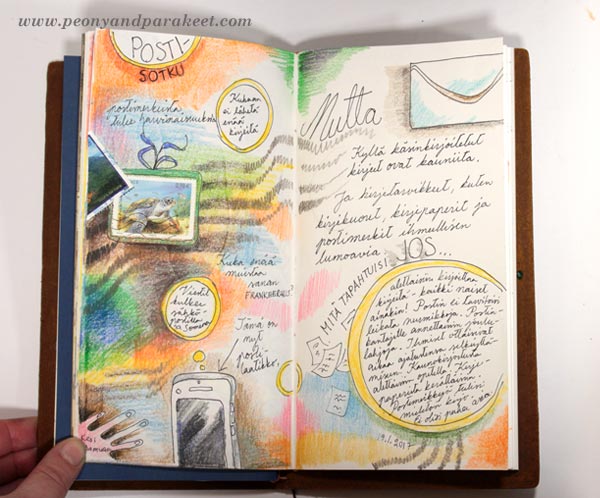 www.peonyandparakeet.com
POSTI-
SOTKU
postimerkeistä
tulee harvinaisuuksia
Kukaan
ei lähetä
enää
kirjeitä
Kuka enää
muistaa
sanan
FRANKEERAUS?
Viestit
kulkee
sähkö-
postilla
ja Somessa
Tämä on
nyt
posti-
laatikko.
Käsi
Mutta
Kyllä käsinkirjoitetut
kirjeet ovat kauniita.
Ja kirjetarvikkeet, kuten
kirjekuoret, kirjepaperit ja
postimerkit ihmeellisen
lumoavia.
MITÄ TAPAHTUISI JOS...
alettaisiin kirjoittaa
kirjeitä - kaikki naiset
ainakin! Postin ei tarvitsisi
leikata nurmikkoja. Postin-
kantajille annettaisiin joulu-
lahjoja. Ihmiset ottaisivat
aikaa ajatustensa selkiyttä-
miseen. Kaunokirjoitusta
alettaisiin opetella. Kirje-
papereita kerättäisiin.
Postimerkkejä tulisi
kirjo
Ei olisi paha asia.
19.1.2017